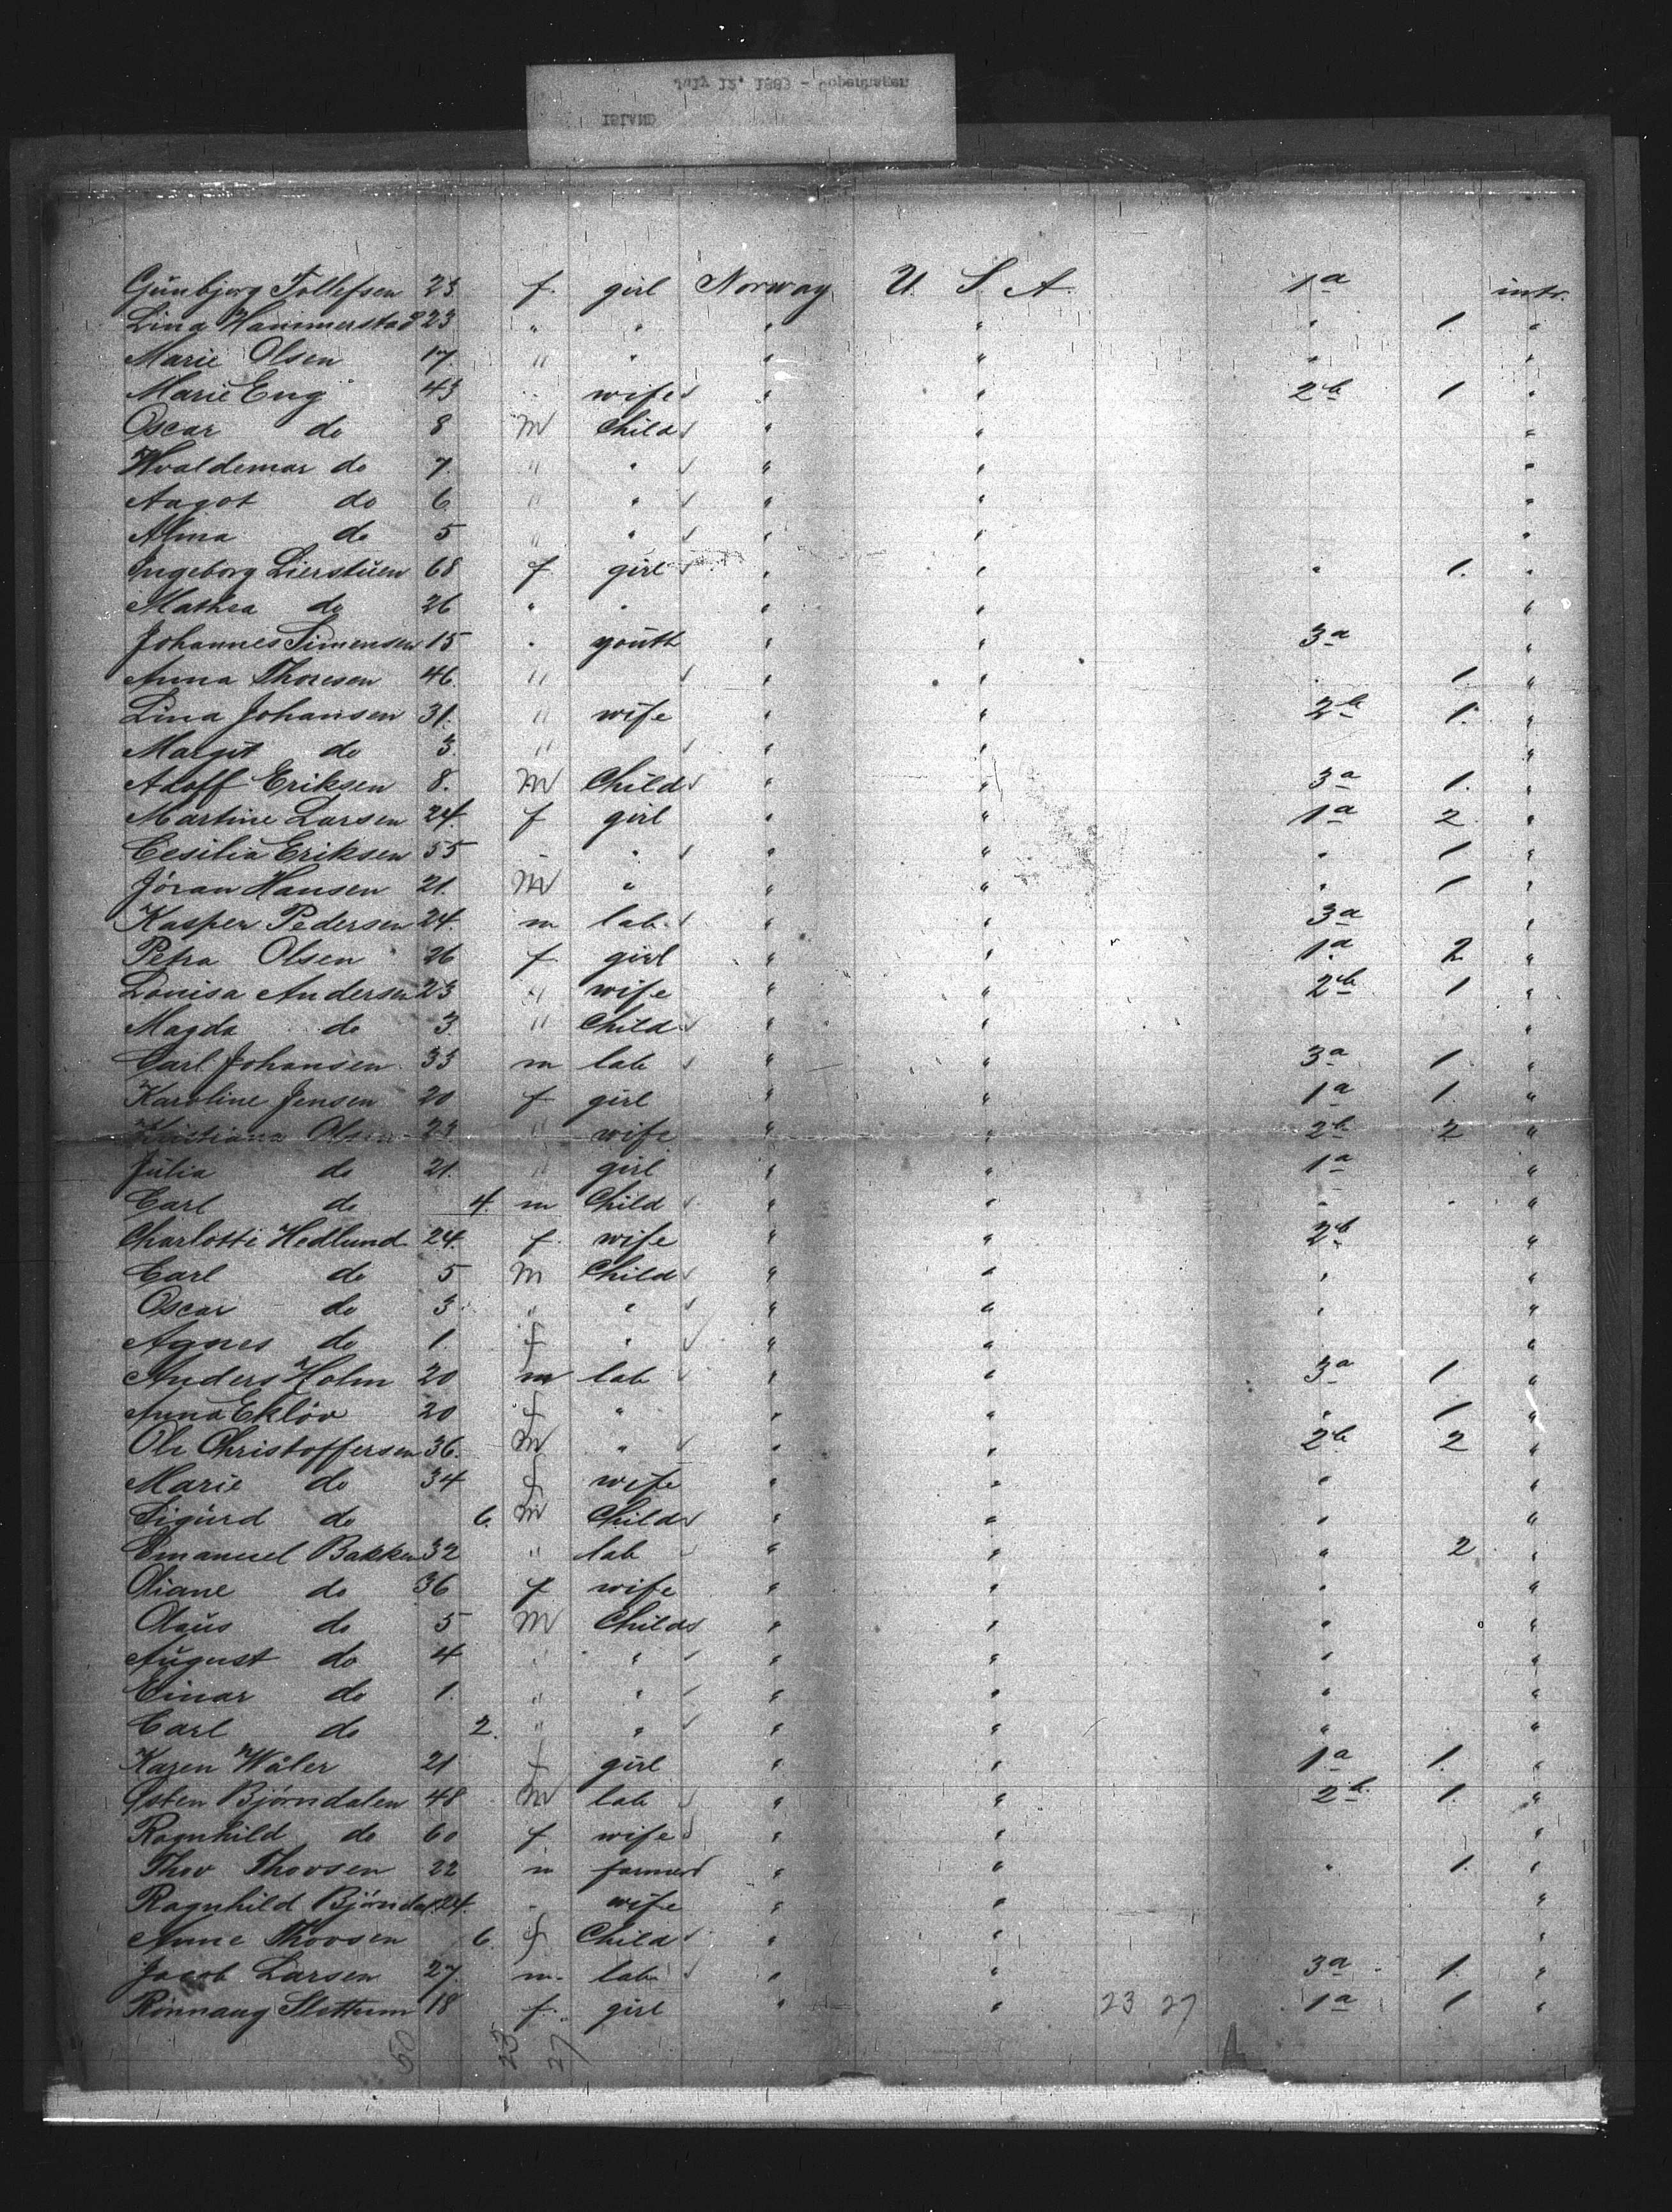 July 12, 1893 - Copenhagen
ISLAND
Gunbjørg Tollefsen 23 f. girl Norway U. S. A. 1a intr.
Lina Hammerstad 23 " " " " " 1. "
Marie Olsen 17. " " " " " "
Marie Eng 43 " wife " " 2b 1. "
Oscar do 8 M Child " " "
Hvaldemar do 7. " " " " "
Aagot do 6 " " " " "
Alma do 5 " " " " "
Ingeborg Lierstuen 68 f girl " " " 1. "
Mathea do 26 " " " " "
Johannes Simensen 15 " youth " " 3a "
Anna Thoresen 46. " " " " 1. "
Lina Johansen 31. " wife " " 2b 1. "
Margit do 3. " " " "
Adolf Eriksen 8. M Child " " 3a 1. "
Martine Larsen 24. f girl " " 1a 2. "
Cesilia Eriksen 55 " " " " " 1. "
Jöran Hansen 21. M " " " " 1 "
Kasper Pedersen 24. m lab. " " 3a "
Petra Olsen 26 f girl " " 1a 2 "
Louisa Andersen 23 " wife " " 2b 1 "
Magda do 3. " Child " " "
Carl Johansen 33 m lab " " 3a 1. "
Karoline Jensen 20 f girl " " 1a 1. "
Kristiana Olsen " wife " " 2b 2 "
Julia do 21. " girl " " 1a "
Carl do 4. m Child " " " "
Charlotte Hedlund 24. f. wife " " 2b "
Carl do 5 M Child " " " "
Oscar do 3 " " " " " "
Agnes do 1. f " " " "
Anders Holm 20 m lab " " 3a 1. "
Anna Eklöv 20 f " " " " 1 "
Ole Christoffersen 36. M " " " 2b 2 "
Marie do 34 f wife " " " "
Sigurd do 6. M Child " " " "
Emanuel Bakken 32 " lab " " " 2 "
Oliane do 36 f wife " " " "
Olaus do 5 M Child " " " "
August do 4 " " " " " "
Einar do 1. " " " " " "
Carl do 2. " " " " " "
Karen Wåler 21 f girl " " 1a 1. "
Østen Bjørndalen 48 M lab " " 2b 1. "
Ragnhild do 60 f wife " " "
Thov Thovsen 22 m farmer " " " 1. "
Ragnhild Bjørndal 24. " wife " " "
Anne Thovsen 6. f Child " " "
Jacob Larsen 27. m. lab " " 3a 1. "
Rönnaug Slettum 18 f. girl " " 23 27 1a 1 "
50 23 27